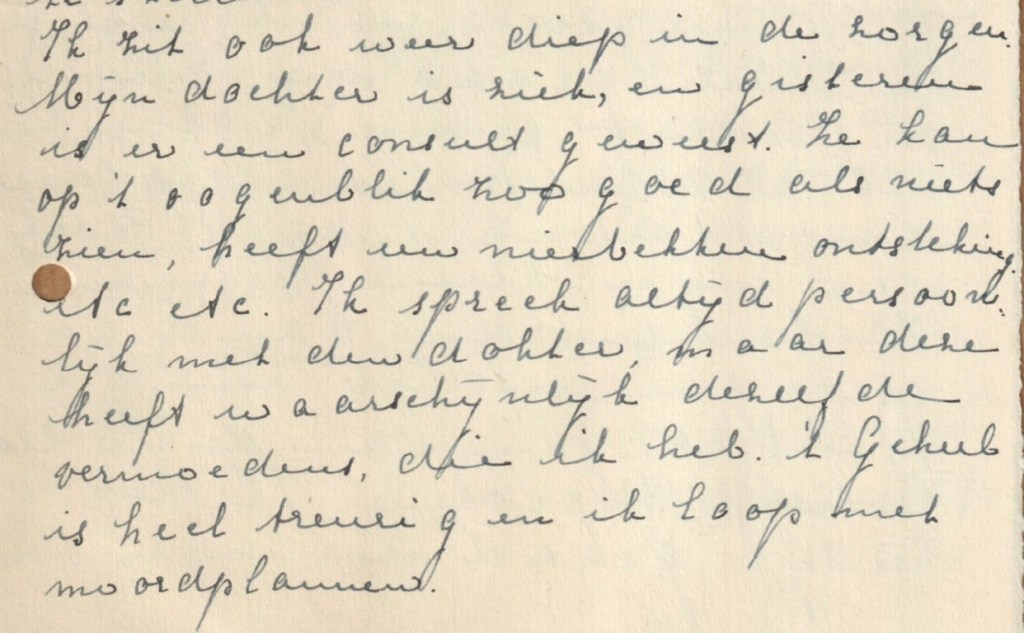 Ik zit ook weer diep in de zorgen.
Mijn dochter is ziek, en gisteren
is er een consult geweest. Ze kan
op 't oogenblik zoo goed als niets
zien, heeft een nierbekken ontsteking.
etc etc. Ik spreek altijd persoon-
lijk met den dokter, maar deze
heeft waarschijnlijk dezelfde
vermoedens, die ik heb. 't Geheel
is heel treurig en ik loop met
moordplannen.